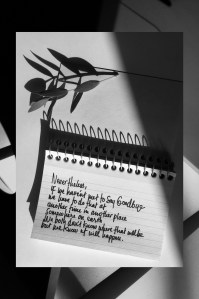 Nevertheless,
if we haven't got to Say Goodbye
we have to do that at
another time in another place
somewhere on earth
We both don't know where that will be
but we know it will happen.